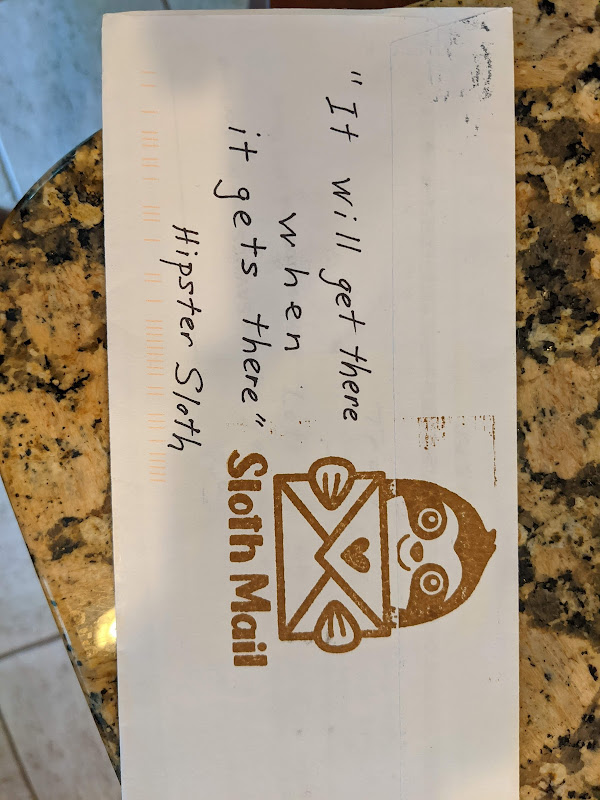 "It will get there
when
it gets there"
Hipster Sloth
Sloth Mail